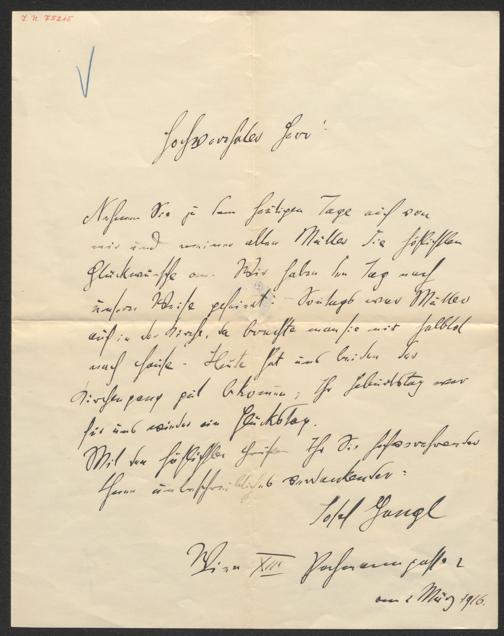 J. N. 75215
Hochverehrter Herr!
Nehmen Sie zu dem heutigen Tage auch von
mir und meiner alten Mutter die höflichsten
Glückwünsche an. Wir haben den Tag nach
unserer Weise gefeiert: - Sonntags war Mutter
auf in der Kirche, da brachte man sie mir halbtot
nach Hause - Heute hat uns beiden der
Kirchengang gut bekommen; Ihr Geburtstag war
für uns wieder ein Glückstag.
Mit den höflichsten Grüßen Ihr Sie hochverehrender
Ihnen unbeschreiblich verdankender:
Josef Gangl
Wien XIII
am 2 März 1916.